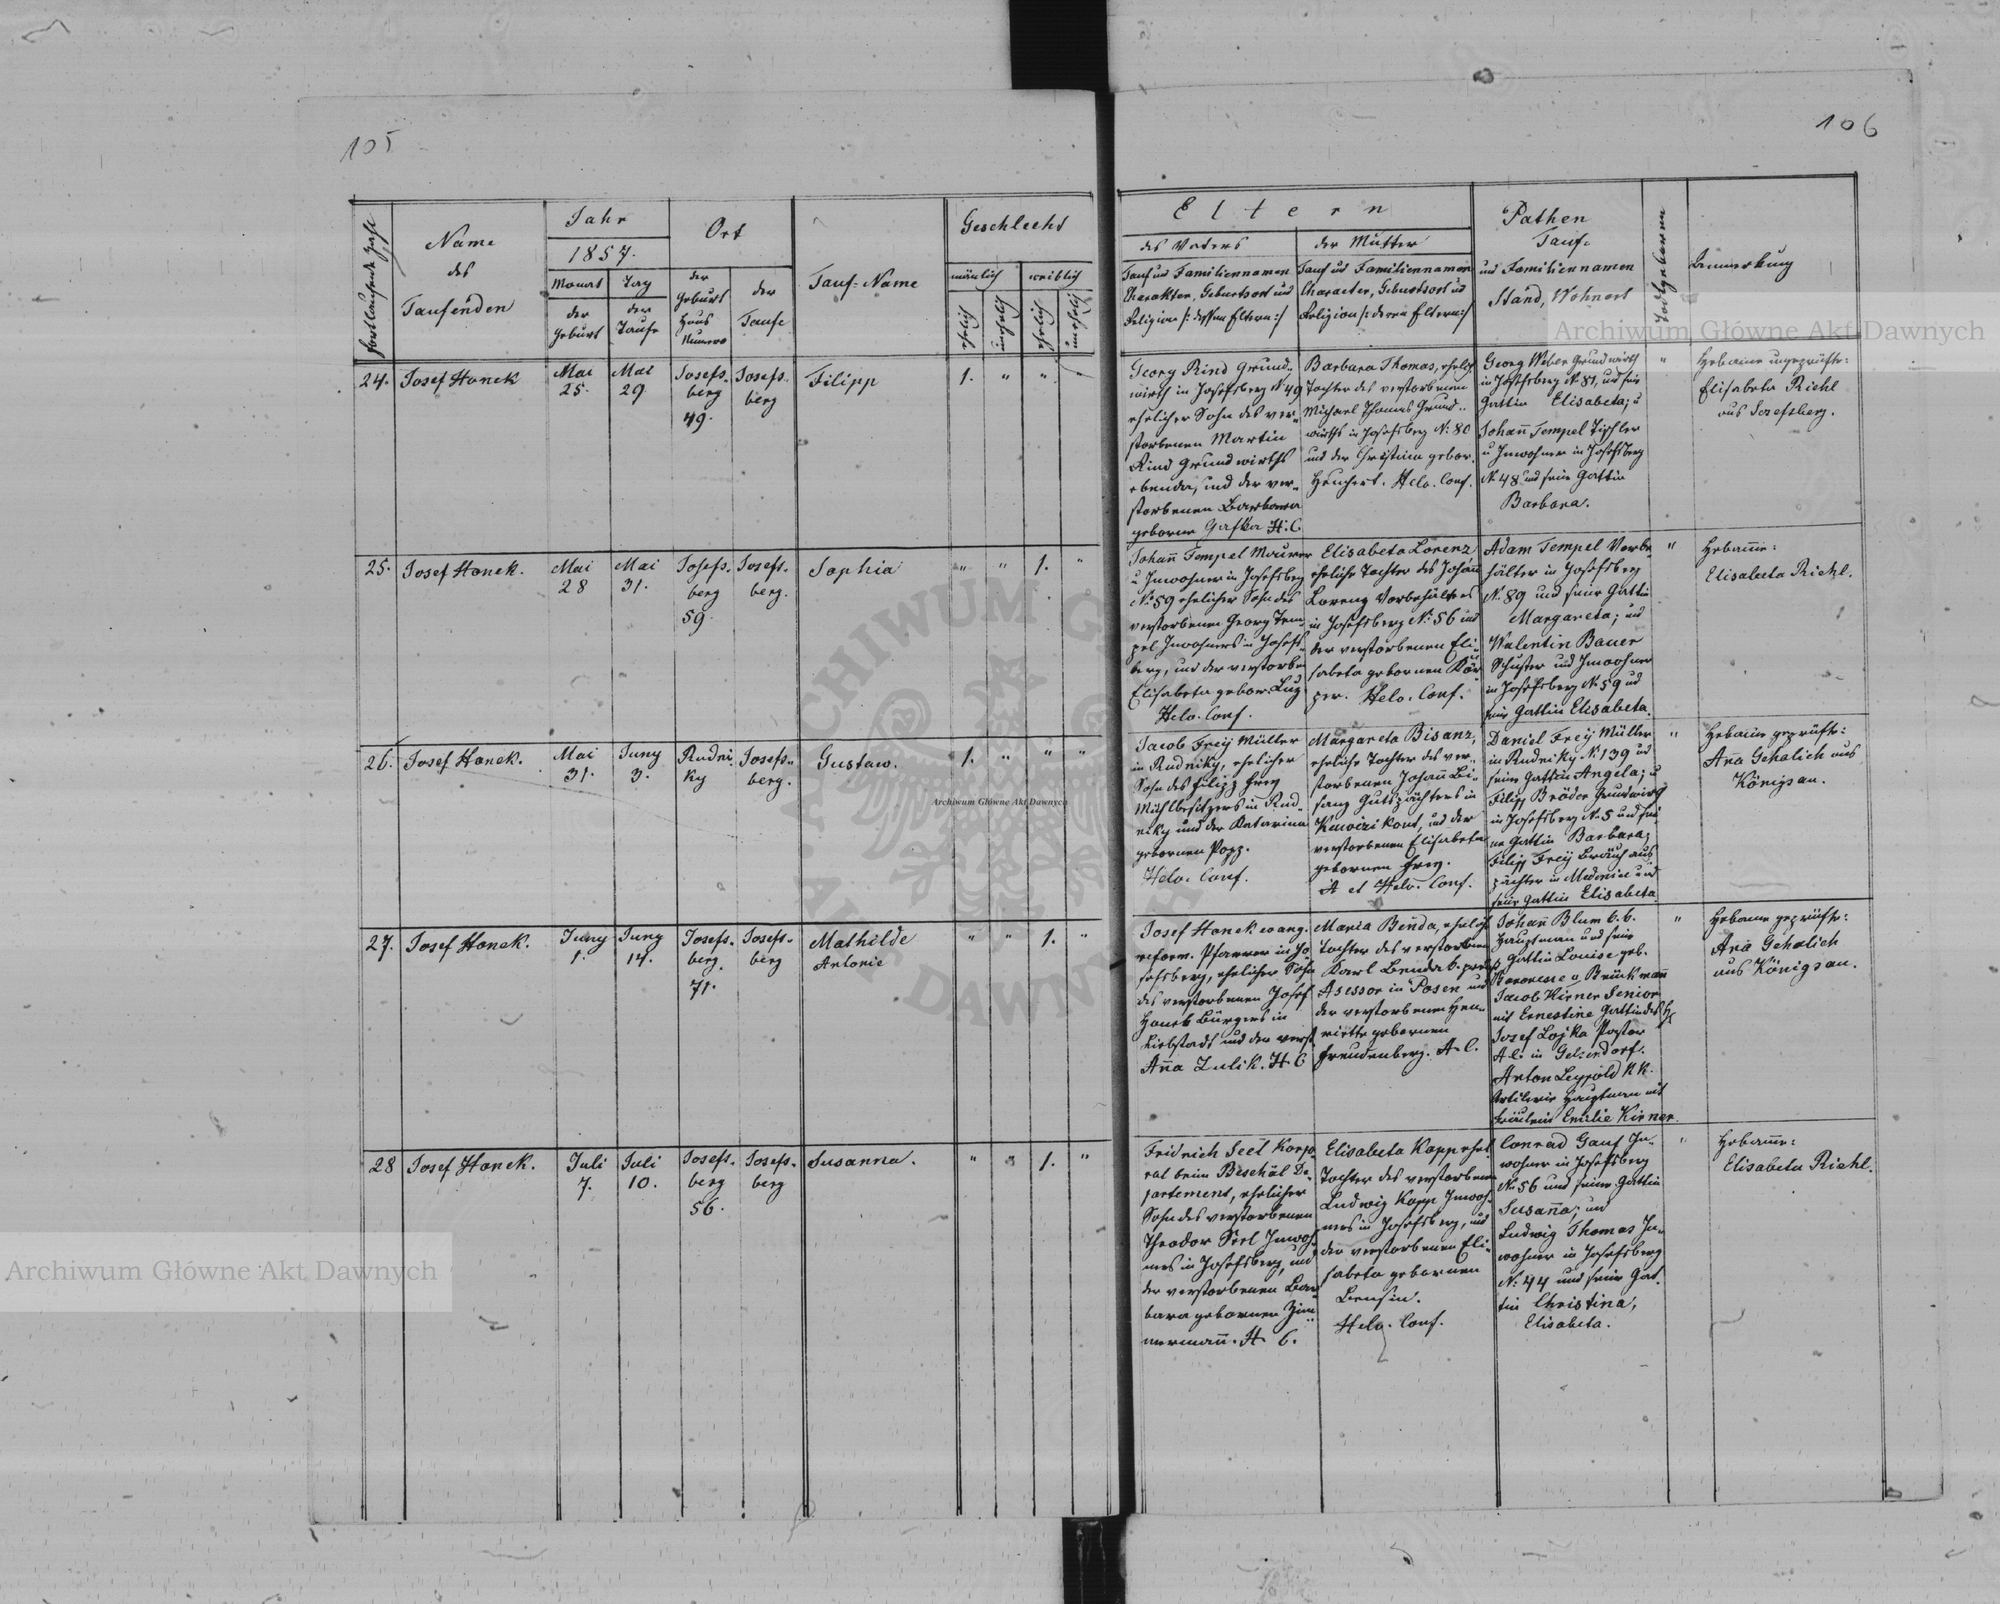 105
106
fortlaufende Zahl
Name
des
Taufenden
Jahr
1857.
Monat
der
Geburt
Tag
der
Taufe
Ort
der
Geburt
Haus
Numero
der
Taufe
Tauf-Name
Geschlecht
mänlich
weiblich
ehelich
unehelich
ehelich
unehelich
Eltern
des Vaters
Tauf und Familiennamen
Charakter, Geburtsort und
Religion /: dessen Eltern :/
der Mutter
Tauf und Familiennamen
Character, Geburtsort und
Religion /: deren Eltern :/
Pathen
Tauf-
und Familiennamen
Stand, Wohnort
Todtgeboren
Anmerkung
24.
Josef Hanek
Mai
25.
Mai
29.
Josefs-
berg
49.
Josefs-
berg
Filipp
1. " " "
Georg Rind Grund-
wirth in Josefsberg N 49
ehelicher Sohn des ver-
storbenen Martin
Rind Grundwirths
ebenda, und der ver-
storbenen Barbara
geborne Gafka H. C.
Barbara Thomas, ehelich
Tochter des verstorbenen
Michael Thomas Grund-
wirths in Josefsberg N: 80
und der Christina gebor.
Henchert. Helv. Conf.
Georg Weber Grundwirth
in Josefsberg N. 81, und seine
Gattin Elisabeta; u
Johañ Tempel Tischler
u Inwohner in Josefsberg
N. 48 und seine Gattin
Barbara.
"
Hebame ungeprüfte:
Elisabeta Riehl
aus Josefsberg.
25.
Josef Hanek.
Mai
28
Mai
31.
Josefs-
berg
59.
Josefs-
berg.
Sophia
" " 1. "
Johañ Tempel Maurer
u Inwohner in Josefsberg
N: 59 ehelicher Sohn des
verstorbenen Georg Tem-
pel Inwohners in Josefs-
berg, und der verstorben
Elisabeta gebor. Luz
Helv. Conf.
Elisabeta Lorenz,
eheliche Tochter des Johañ
Lorenz Vorbehälters
in Josefsberg N: 56 und
der verstorbenen Eli-
sabeta gebornen Kör-
per. Helv. Conf.
Adam Tempel Vorbe-
hälter in Josefsberg
N. 89 und seine Gattin
Margareta; und
Walentin Bauer
Schuster und Inwohner
in Josefsberg N. 59 und
seine Gattin Elisabeta.
"
Hebam̃e:
Elisabeta Riehl.
26.
Josef Hanek.
Mai
31.
Juny
3.
Rudni-
ky
Josefs-
berg.
Gustaw.
1. " " "
Jacob Freÿ Müller
in Rudniky, ehelicher
Sohn des Filipp Frey
Mühlbesitzers in Rud-
niky und der Katarina
gebornen Popp.
Helv. Conf.
Margareta Bisanz,
eheliche Tochter des ver-
storbenen Johañ Bi-
sanz Gutspächters in
und der
verstorbenen Elisabeta
gebornen Frey.
A et Helv. Conf.
Daniel Freÿ Müller
in Rudniky N. 139 und
seine Gattin Angela; u
Filipp Bröder Grundwirth
in Josefsberg N. 5 und sei-
ne Gattin Barbara;
Filipp Freÿ
pächter in Medenice und
seine Gattin Elisabeta.
"
Hebame geprüfte:
Aña Gehalich aus
Königsau.
27.
Josef Hanek.
Juny
1.
Juny
14.
Josefs-
berg.
71.
Josefs-
berg
Mathilde
Antonie
" " 1. "
Josef Hanek evang.
reform. Pfarrer in Jo-
sefsberg, ehelicher Sohn
des verstorbenen Josef
Hanek Bürgers in
Liebstadt und der verst
Aña Zulik. H. C
Maria Beñda, ehelich
Tochter des verstorbenen
Karl Benda k. preuß
Asessor in Posen und
der verstorbenen Hen-
riette gebornen
Freudenberg. A. C.
Johañ Blum k. k.
Hauptman und seine
Gattin Louise geb.
Baronesse v Brückmañ
Jacob Kirner Senior
mit Ernestine Gattin des H
Josef Lojka Pastor
A C. in Gelsendorf.
Anton Leypold k k.
Artilerie Hauptman mit
Fräulein Emilie Kirner.
"
Hebame geprüfte:
Aña Gehalich
aus Königsau.
28
Josef Hanek.
Juli
7.
Juli
10.
Josefs-
berg
56.
Josefs-
berg
Susanna.
" " 1. "
Fridrich Seel Korpo-
ral beim Beschäl De-
partement, ehelicher
Sohn des verstorbenen
Theodor Seel Inwoh-
ners in Josefsberg, und
der verstorbenen Bar-
bara gebornen Zim-
mermañ. H. C.
Elisabeta Kopp ehel.
Tochter des verstorbenen
Ludwig Kopp Inwoh-
ners in Josefsberg, und
der verstorbenen Eli-
sabeta gebornen
Bensin.
Helv. Conf.
Conrad Gauf In-
wohner in Josefsberg
N. 56 und seine Gattin
Susaña; und
Ludwig Thomas In-
wohner in Josefsberg
N: 44 und seine Gat-
tin Christina,
Elisabeta.
"
Hebam̃e:
Elisabeta Riehl.
Archiwum Główne Akt Dawnych
Archiwum Główne Akt Dawnych
Archiwum Główne Akt Dawnych